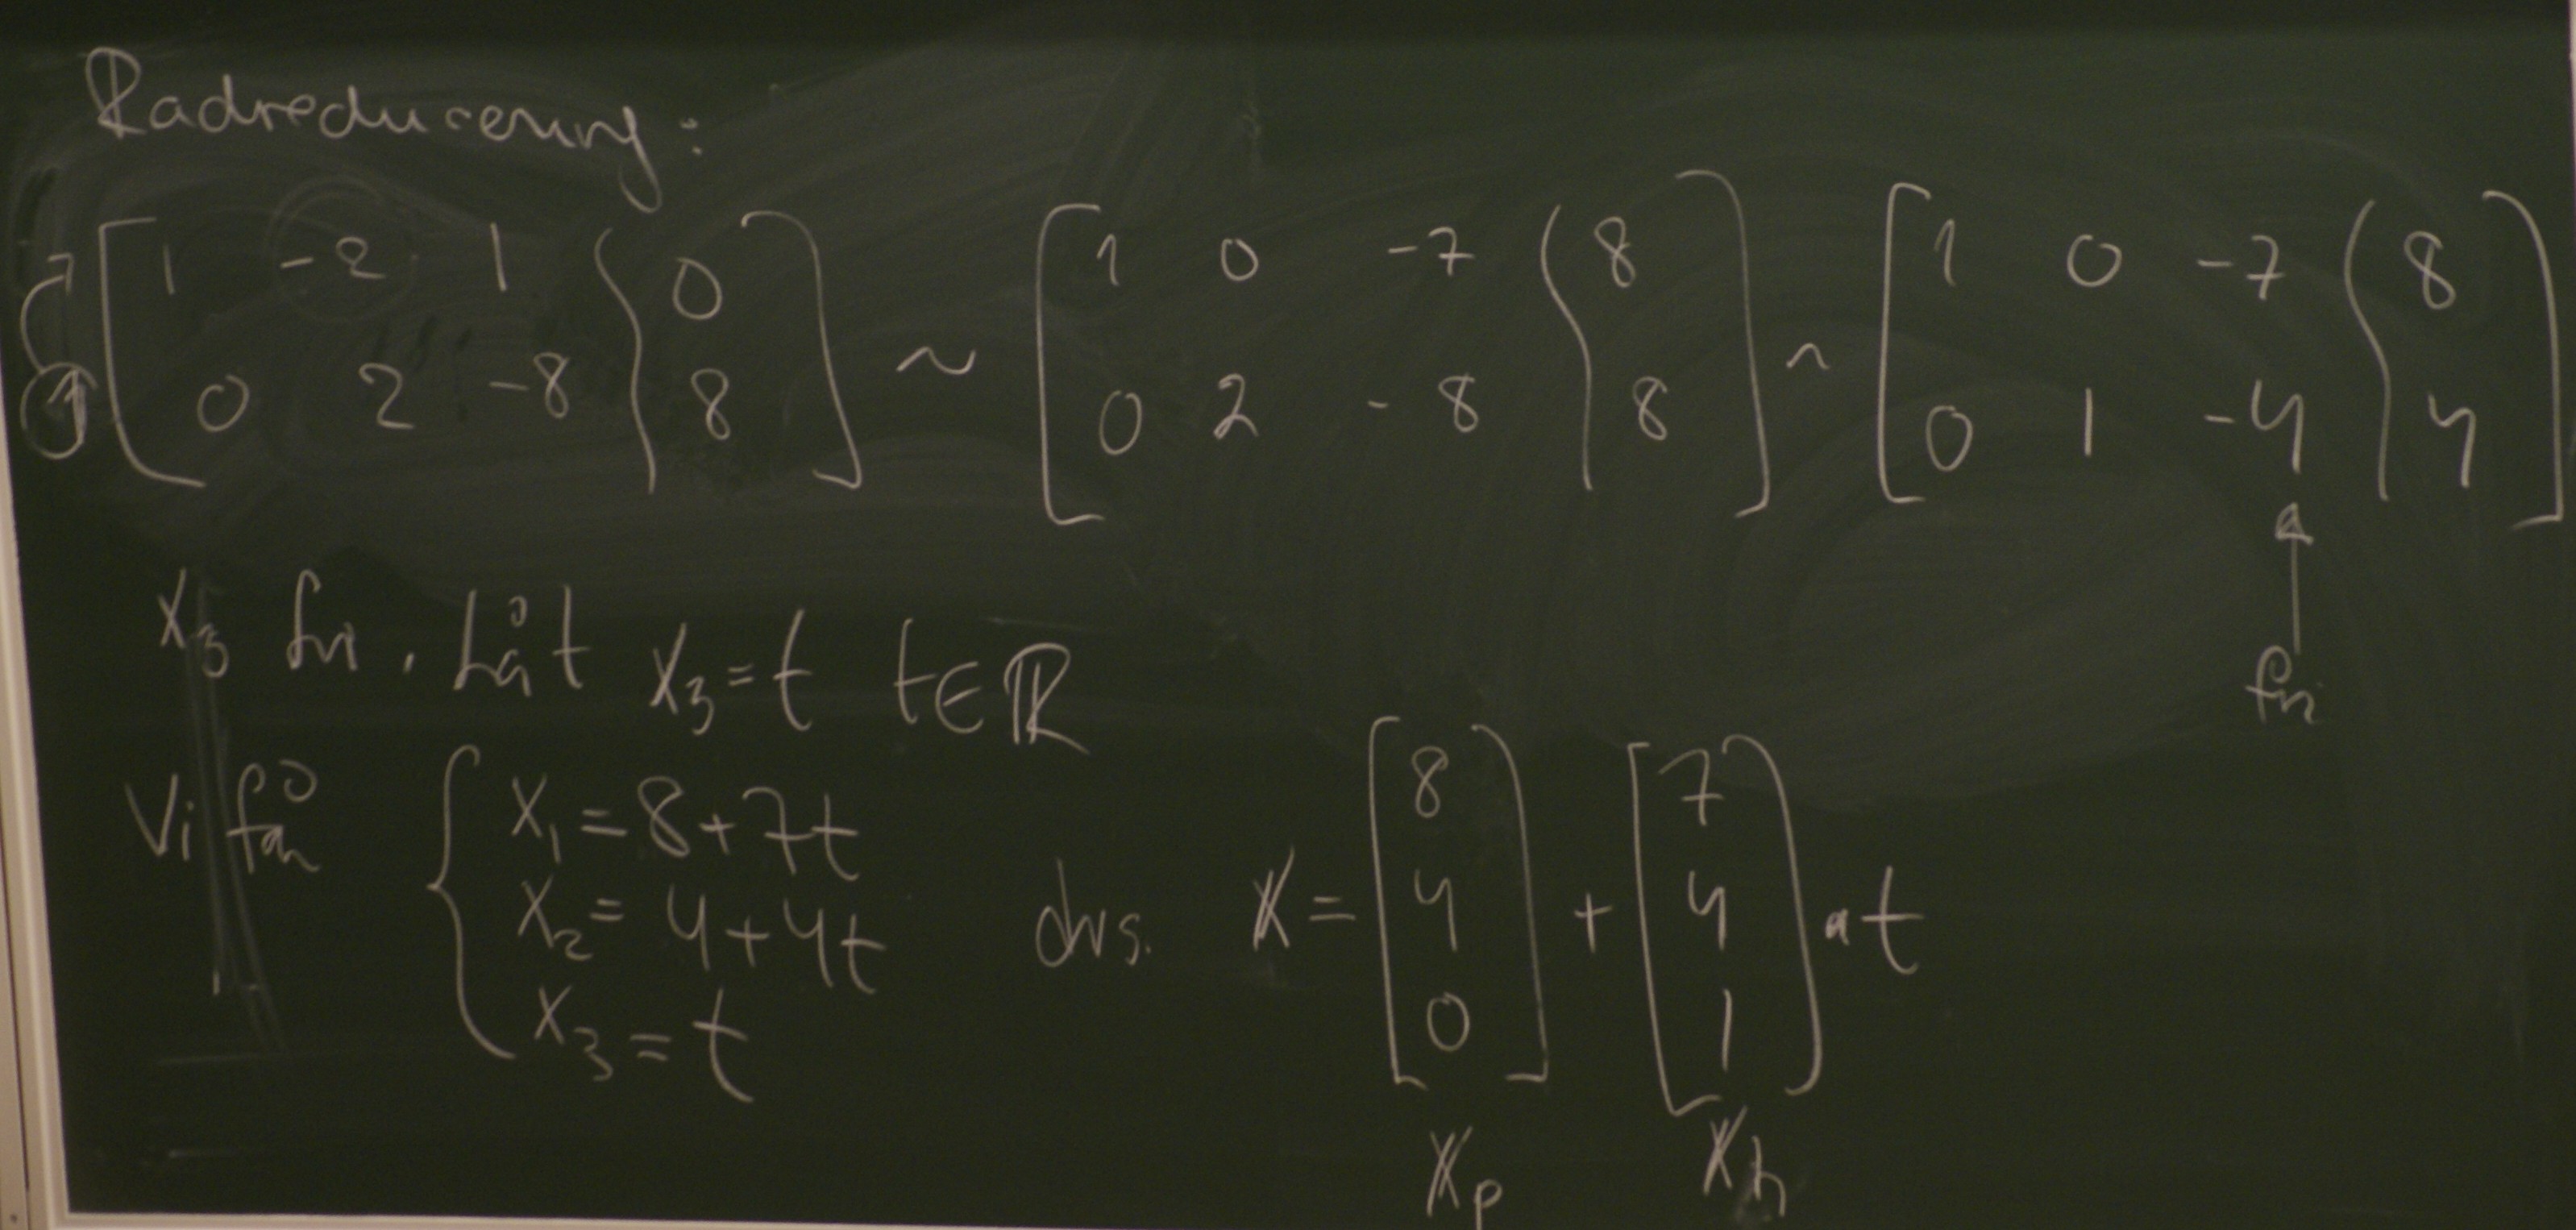 Radreducering:
[1 -2 1 | 0] ~ [1 0 -7 | 8] ~ [1 0 -7 | 8]
① [0 2 -8 | 8] [0 2 -8 | 8] [0 1 -4 | 4]
fri
x₃ fri. Låt x₃ = t t ∈ ℝ
Vi får { x₁ = 8 + 7t
x₂ = 4 + 4t dvs. 𝕏 = [8 4 0] + [7 4 1] · t
x₃ = t
𝕏p 𝕏h